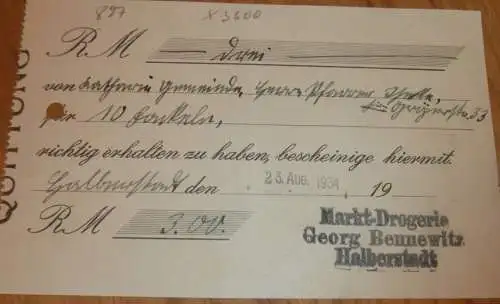 897 x 3600
QUITTUNG
RM drei
von Katholi Gemeinde, Herrn Pfarrer
33
für 10 Fackeln,
richtig erhalten zu haben, bescheinige hiermit.
Halberstadt den 23. Aug. 1934 19
RM 3.00.
Markt-Drogerie
Georg Bennewitz
Halberstadt